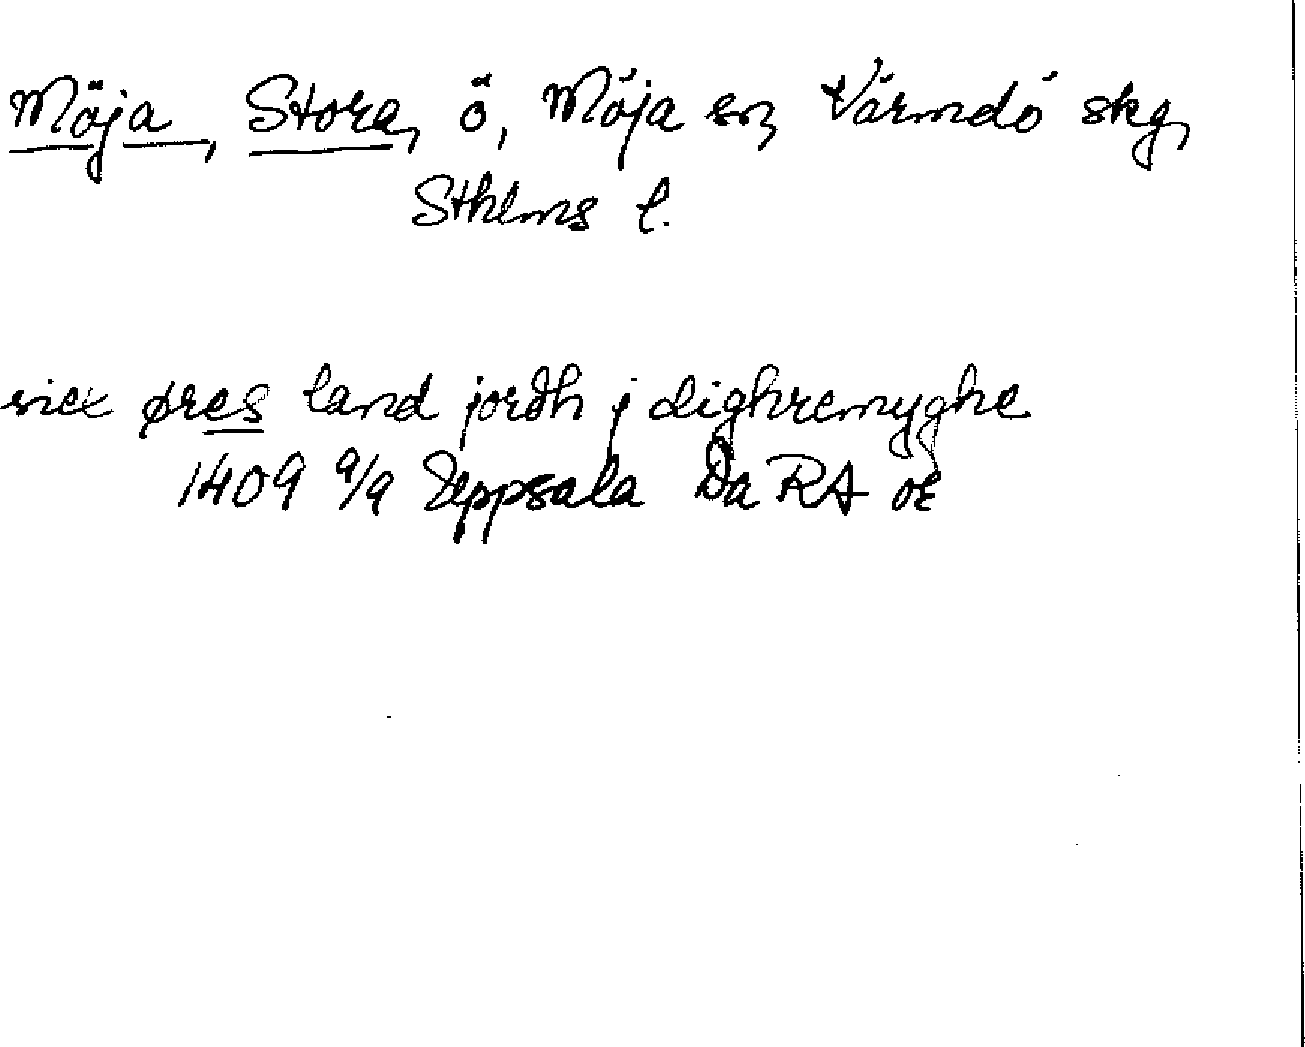 Möja, Stora, ö, Möja sn, Värmdö skg,
Sthlms l.
øres land jordh j dighremyghe
1409 9/9 Uppsala Da RA or